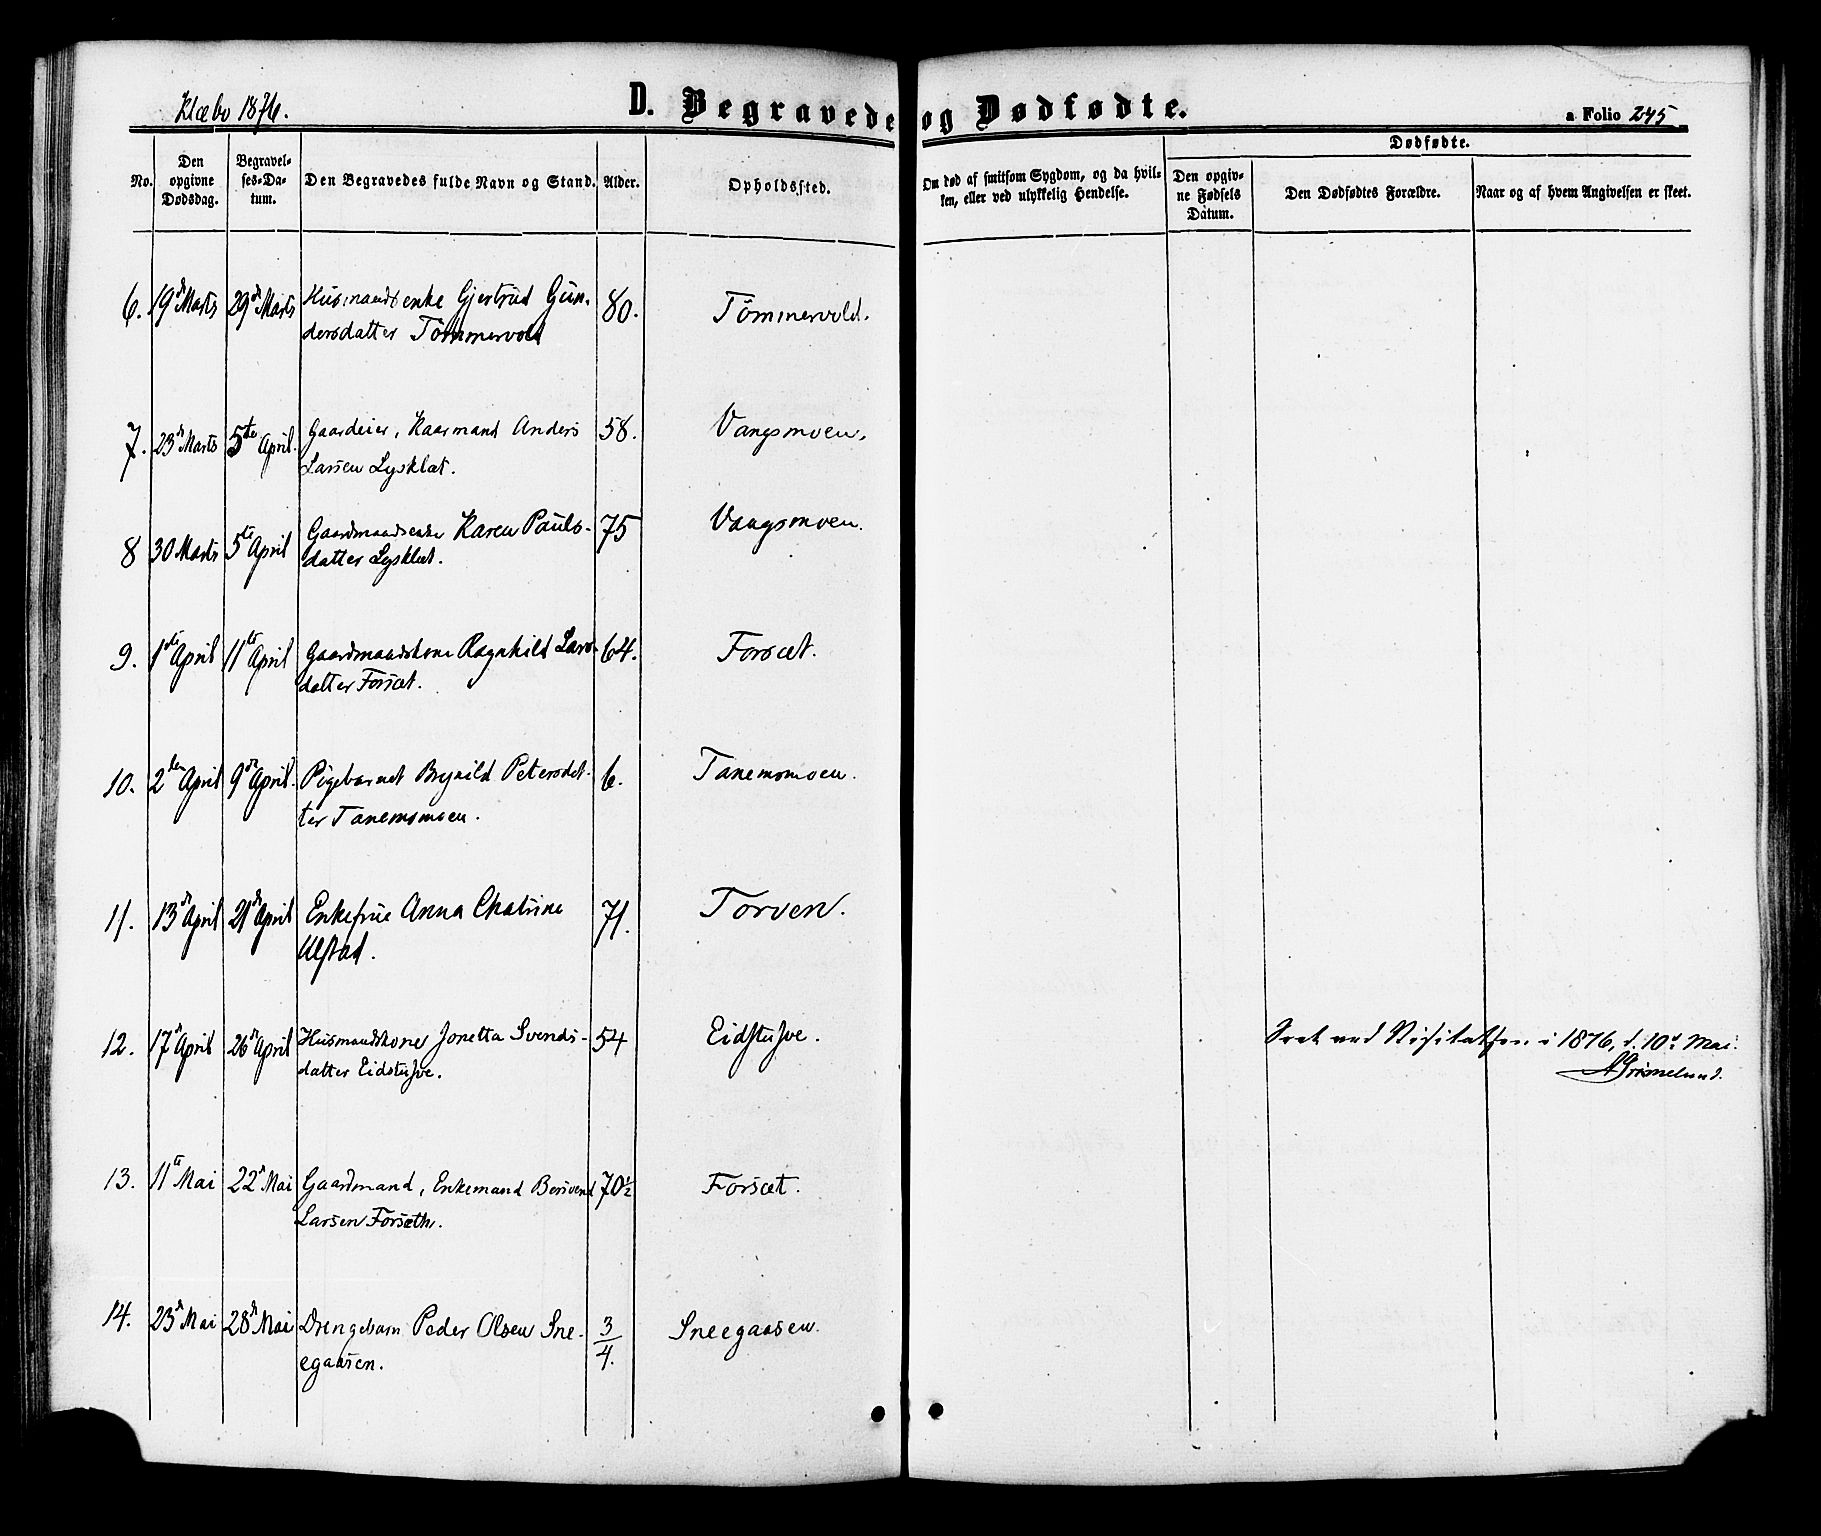 Klæbo 1876.
D. Begravede og Dødfødte.
a Folio 245
No.
Den opgivne Dødsdag.
Begravelses-Datum.
Den Begravedes fulde Navn og Stand.
Alder.
Opholdssted.
Om død af smitsom Sygdom, og da hvilken, eller ved ulykkelig Hendelse.
Dødfødte.
Den opgivne Fødsels Datum.
Den Dødfødtes Forældre.
Naar og af hvem Angivelsen er skeet.
6. 19de Marts 29de Marts Husmandsenke Gjertrud Gun- 80. Tömmervold.
dersdatter Tömmervold
7. 23de Marts 5te April. Gaardeier, Kaarmand Anders 58. Vangsmoen.
Larsen Lysklæt.
8 30 Marts 5te April Gaardmandsenke Karen Pauls- 75 Vangsmoen.
datter Lysklæt.
9. 1ste April 11te April Gaardmandskone Ragnhild Lars- 64. Forsæt.
datter Forsæt.
10. 2den April 9de April. Pigebarnet Brynild Petersdat- 6. Tanemsmoen.
ter Tanemsmoen.
11. 13de April 21de April Enkefrue Anna Chatrine 71. Torven.
Ulstad.
12. 17de April 26de April Husmandskone Jonetta Svends- 54 Eidstuſve.
datter Eidstuſve.
Seet ved Visitatsen i 1876, d. 10de Mai.
AGrimelund.
13. 11te Mai 22de Mai Gaardmand, Enkemand Bersvend 70½ Forsæt.
Larsen Forsæth.
14. 23de Mai 28de Mai Drengebarn Peder Olsen Sne- 3/4. Sneegaasen.
egaasen.